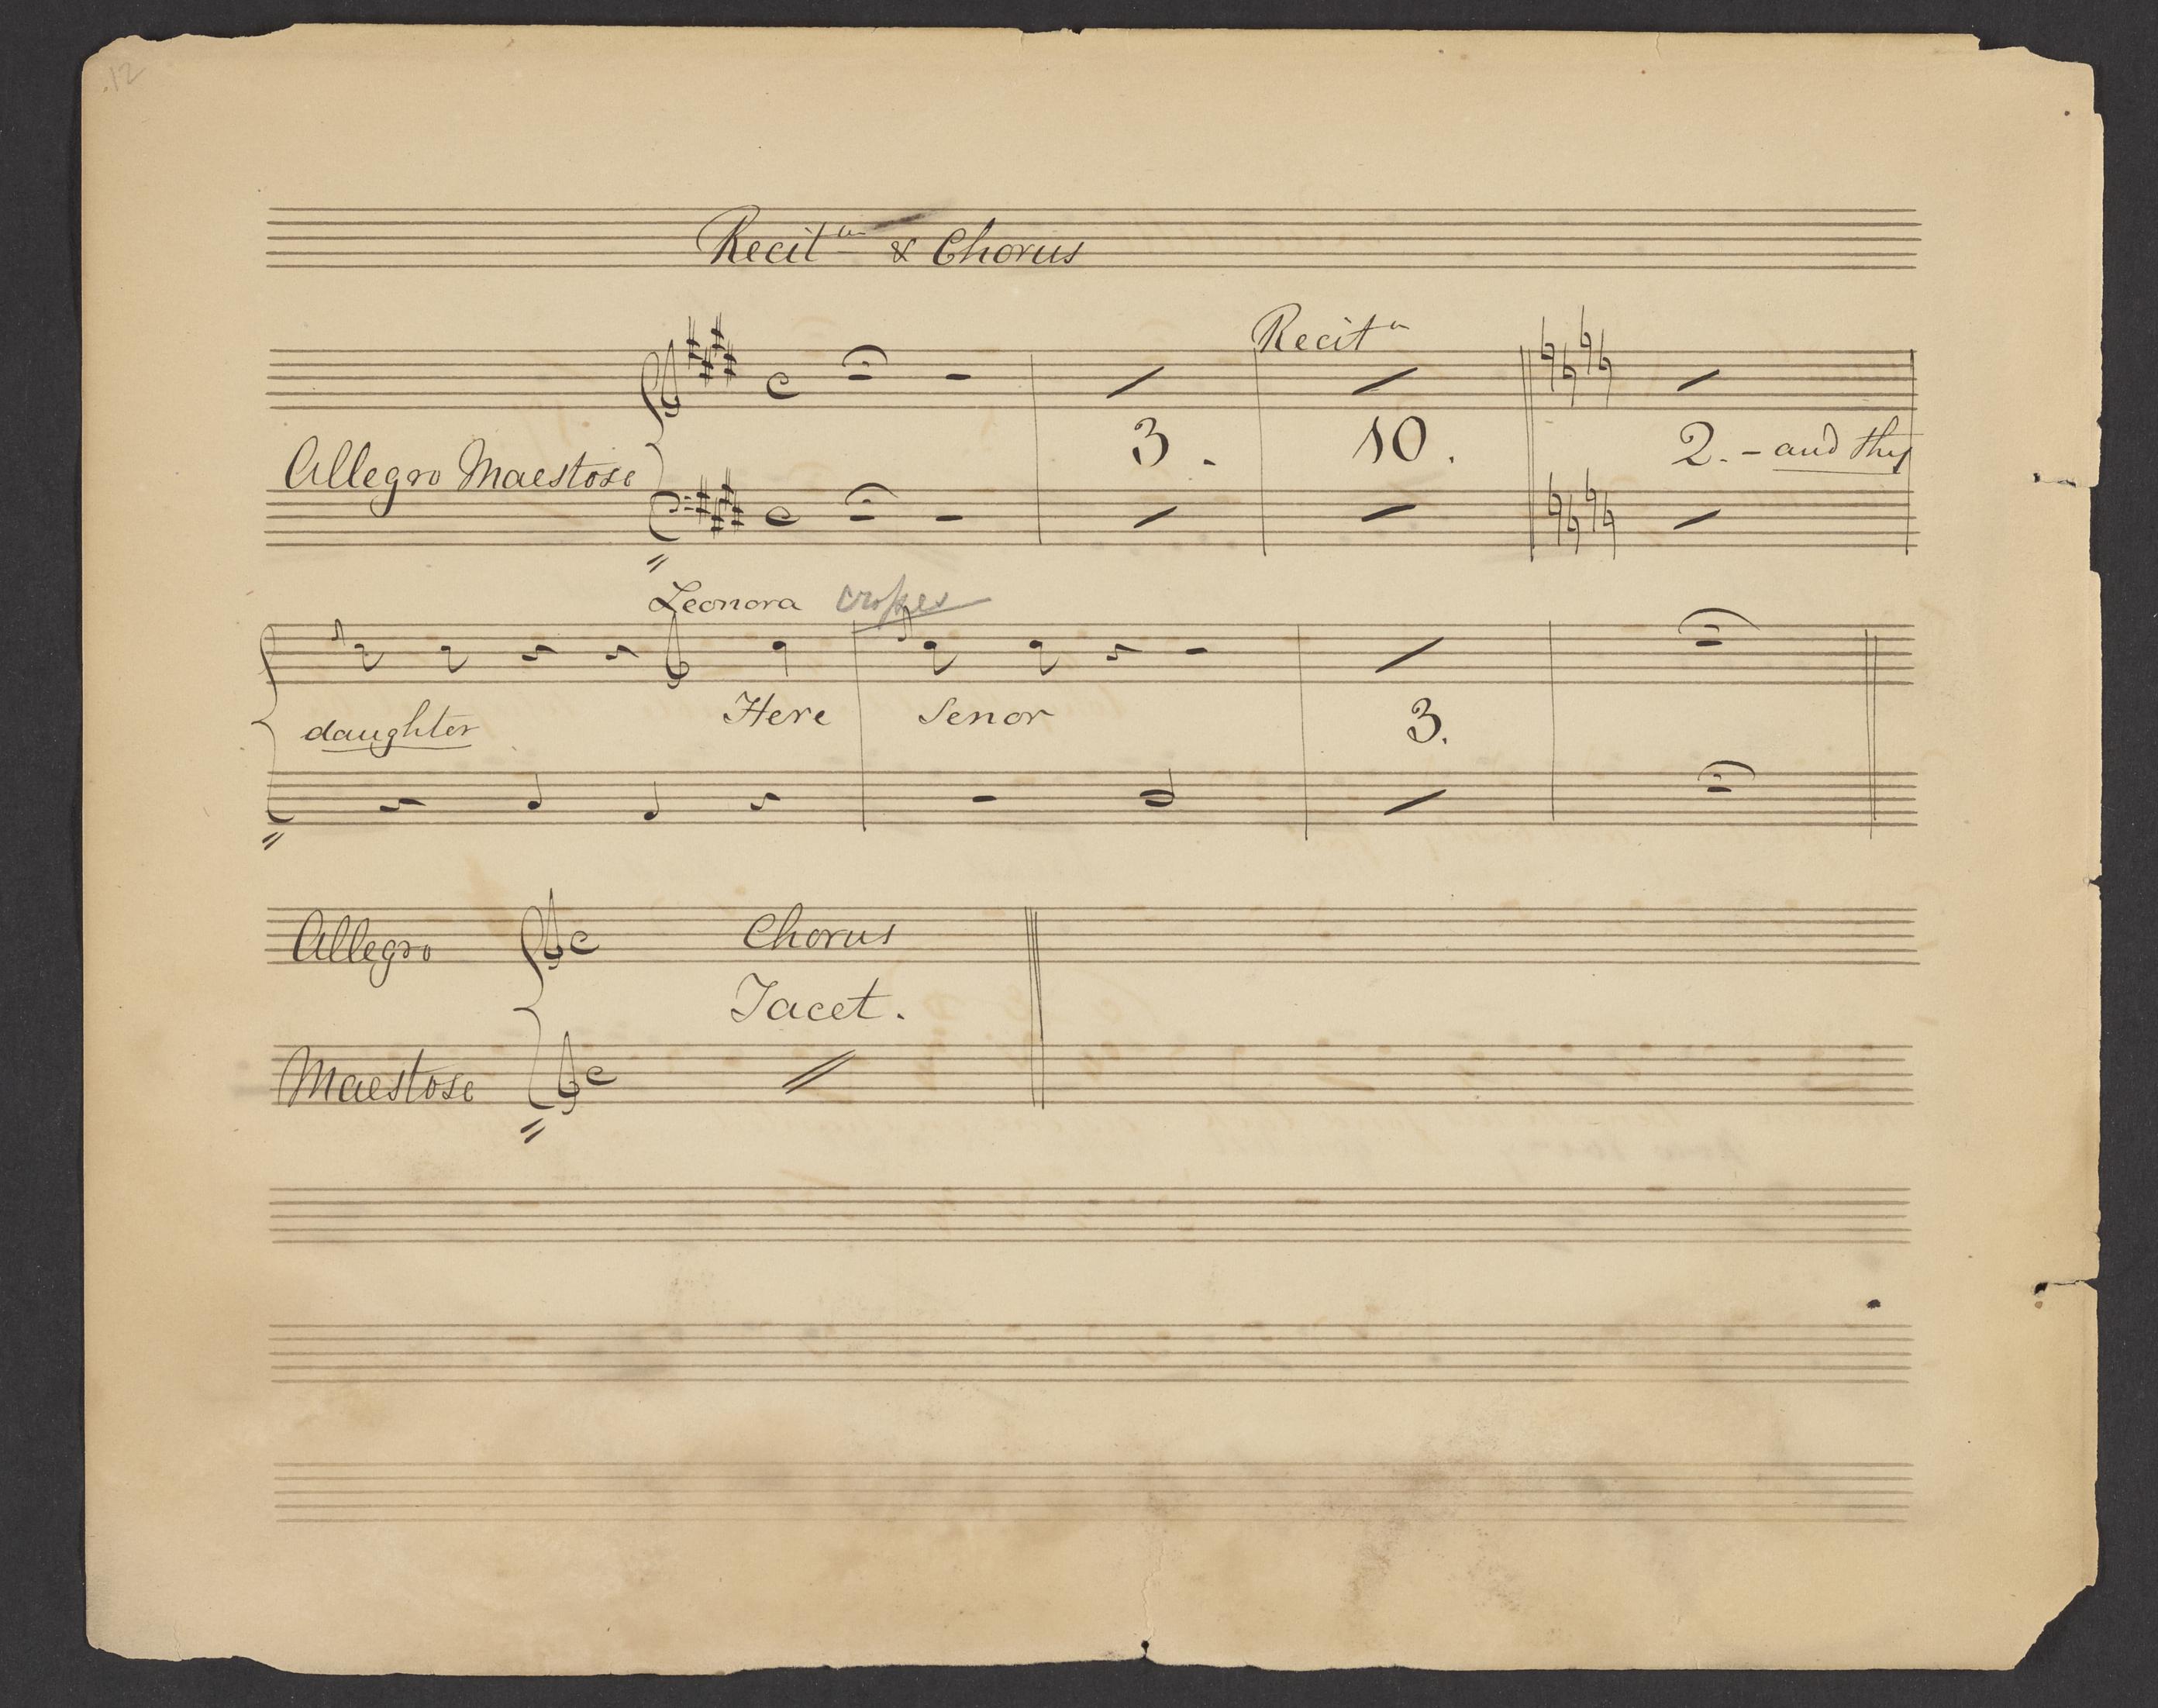 .12
Recit^n & Chorus
Recit^n
3. 10. 2. - and thy
Allegro Maestose
Leonora crosses
daughter Here Senor 3.
Allegro Chorus
Tacet.
Maestose